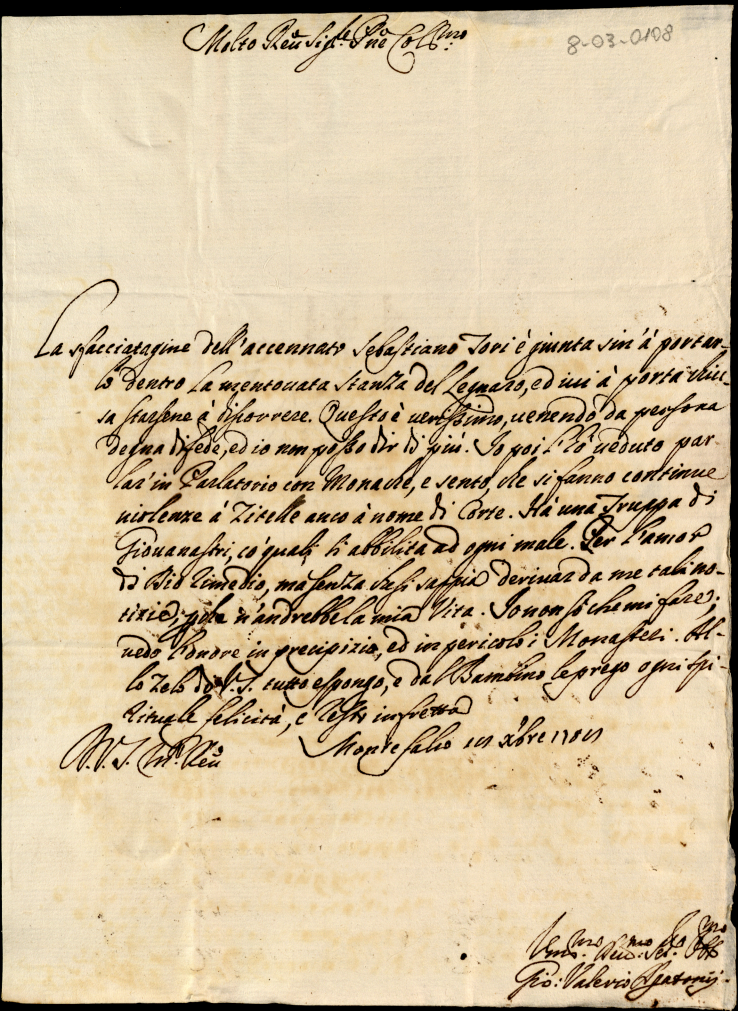 Molto Reu Sig.re Pne Col.mo
8-03-0108
La sfacciatagine dell'accennato Sebastiano Tori è giunta sin'à portar-
lo dentro la mentouata stanza del Legnaro, ed iui à porta chiu-
sa starsene à discorrere. Questo è uerissimo, uenendo da persona
degna di fede, ed io non posso dir di più. Io poi l'hò ueduto par
lar' in Parlatorio con Monache, e sento, che si fanno continue
uiolenze à Zitelle anco à nome di Corte. Hà una Truppa di
Giouanastri, co' quali si abbilita ad ogni male. Per l'amor
di Dio rimedio, ma senza che si sappia deriuar da me tali no-
tizie, n'andrebbe la mia Vita. Io non sò che mi fare;
uedo l'onore in precipizio, ed in pericolo i Monasteri. Al-
lo Zelo di V.S. tutto espongo, e dal Bambino le prego ogni spi-
rituale felicità, e resto in fretta
D. V. S. M.to Reu
Monte falco Xbre
Reu.mo
Gio: Valerio